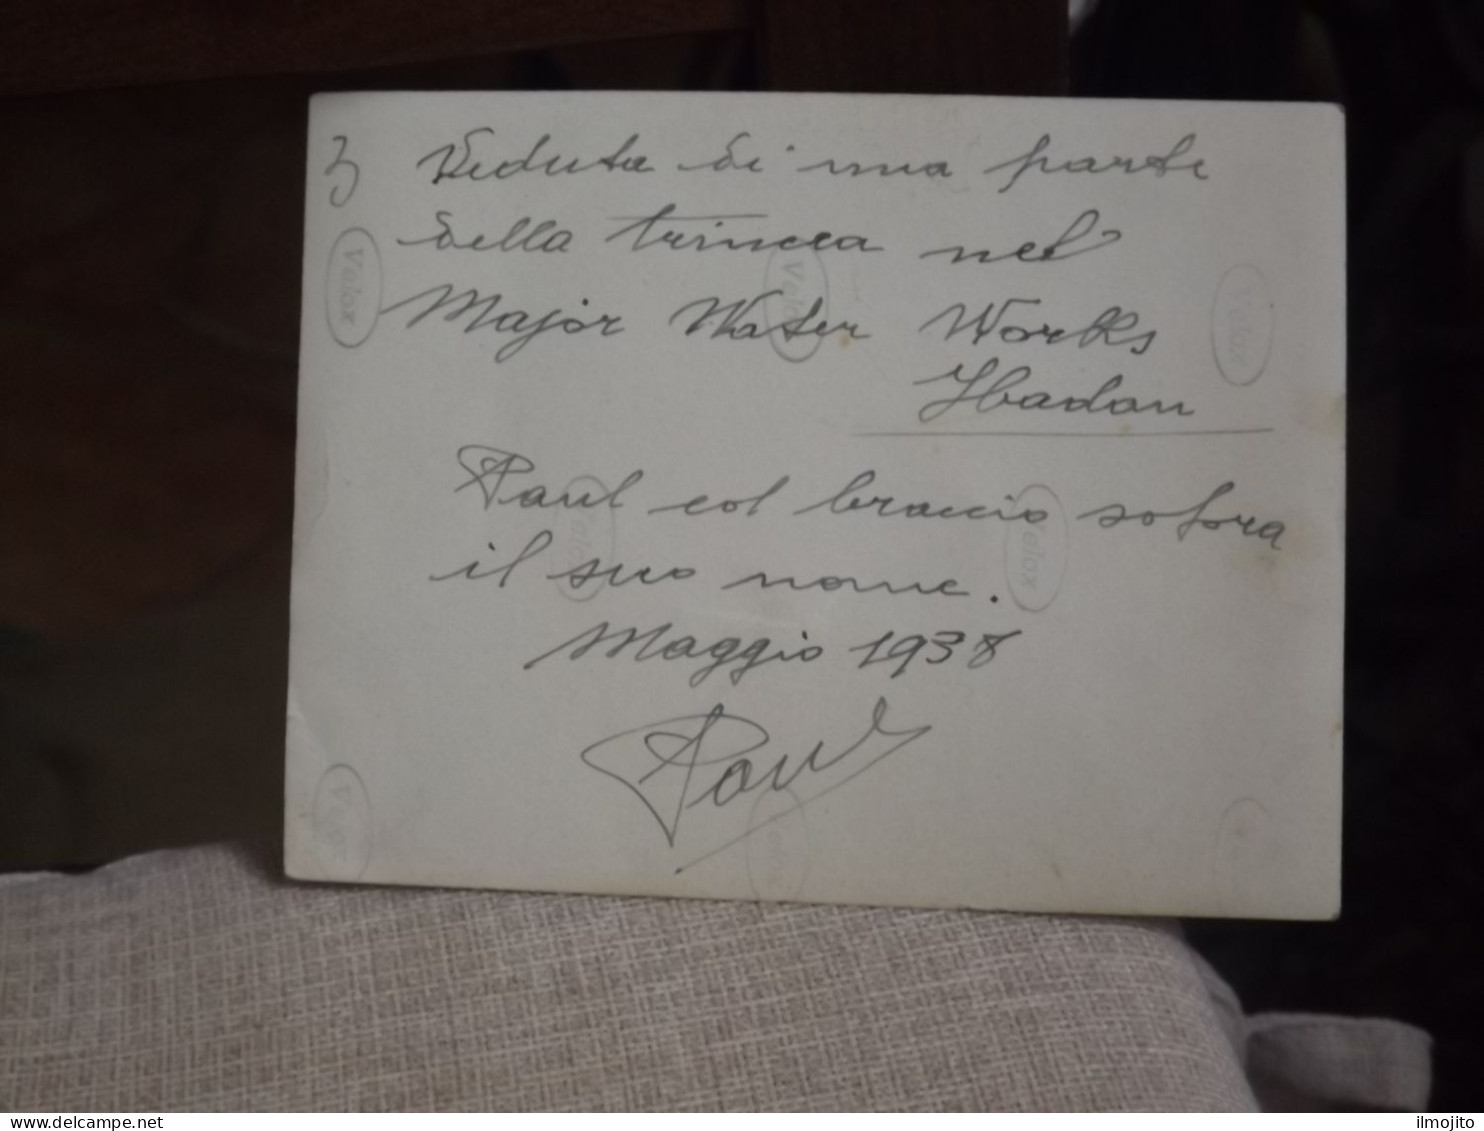 3 Veduta di una parte
della trincea nel
Major Water Works
Ibadan
Paul col braccio sopra
il suo nome.
Maggio 1938
Paul
Velox
Velox
Velox
Velox
Velox
delcampe.net
ilmojito